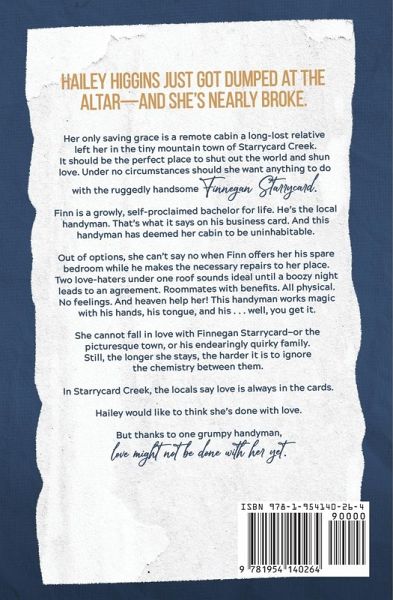 HAILEY HIGGINS JUST GOT DUMPED AT THE
ALTAR—AND SHE'S NEARLY BROKE.
Her only saving grace is a remote cabin a long-lost relative
left her in the tiny mountain town of Starrycard Creek.
It should be the perfect place to shut out the world and shun
love. Under no circumstances should she want anything to do
with the ruggedly handsome Finnegan Starrycard.
Finn is a growly, self-proclaimed bachelor for life. He's the local
handyman. That's what it says on his business card. And this
handyman has deemed her cabin to be uninhabitable.
Out of options, she can't say no when Finn offers her his spare
bedroom while he makes the necessary repairs to her place.
Two love-haters under one roof sounds ideal until a boozy night
leads to an agreement. Roommates with benefits. All physical.
No feelings. And heaven help her! This handyman works magic
with his hands, his tongue, and his . . . well, you get it.
She cannot fall in love with Finnegan Starrycard–or the
picturesque town, or his endearingly quirky family.
Still, the longer she stays, the harder it is to ignore
the chemistry between them.
In Starrycard Creek, the locals say love is always in the cards.
Hailey would like to think she's done with love.
But thanks to one grumpy handyman,
love might not be done with her yet.
ISBN 978-1-954140-26-4
90000
9 781954 140264